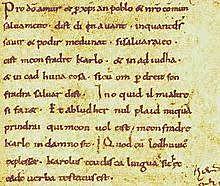 Pro dō amur & p xp̄ian poblo & nr̄o commun
saluament. dist di en auant. inquantdš
sauir & podir medunat. sisaluaraieo.
cist meon fradre Karlo. & in adiudha.
& in cad huna cosa. sicū om p dreit son
fradra saluar dist. Ino quid il mialtre
si fazet. Et abludher nul plaid nūquā
prindrai qui meon uol cist. meonfradre
Karle in damno sit. Quod cū lodhuuic
explesset. karolus teudisca lingua sic hec
eadē uerba testatus est.